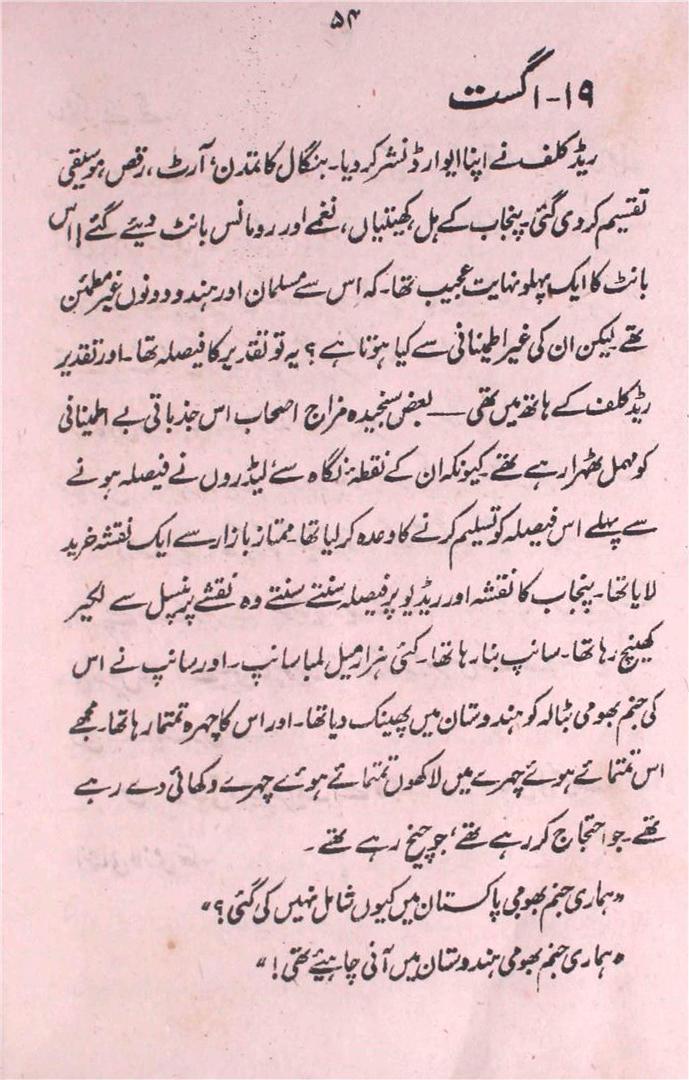 ۵۴
۱۹-اگست
ریڈ کلف نے اپنا ایوارڈ نشر کر دیا۔ بنگال کا تمدن، آرٹ، رقص، موسیقی
تقسیم کر دی گئی۔ پنجاب کے ہل، کھیتیاں، نغمے اور رومانس بانٹ دیئے گئے! اس
بانٹ کا ایک پہلو نہایت عجیب تھا۔ کہ اس سے مسلمان اور ہندو دونوں غیر مطمئن
تھے۔ لیکن ان کی غیر اطمینانی سے کیا ہوتا ہے؟ یہ تو تقدیر کا فیصلہ تھا۔ اور تقدیر
ریڈ کلف کے ہاتھ میں تھی — بعض سنجیدہ مزاج اصحاب اس جذباتی بے اطمینانی
کو مہمل ٹھہرا رہے تھے۔ کیونکہ ان کے نقطۂ نگاہ سے لیڈروں نے فیصلہ ہونے
سے پہلے اس فیصلہ کو تسلیم کرنے کا وعدہ کر لیا تھا۔ ممتاز بازار سے ایک نقشہ خرید
لایا تھا۔ پنجاب کا نقشہ اور ریڈیو پر فیصلہ سنتے سنتے وہ نقشے پر پنسل سے لکیر
کھینچ رہا تھا۔ سانپ بنا رہا تھا۔ کئی ہزار میل لمبا سانپ۔ اور سانپ نے اس
کی جنم بھومی بٹالہ کو ہندوستان میں پھینک دیا تھا۔ اور اس کا چہرہ تمتما رہا تھا۔ مجھے
اس تمتمائے ہوئے چہرے میں لاکھوں تمتمائے ہوئے چہرے دکھائی دے رہے
تھے۔ جو احتجاج کر رہے تھے، جو چیخ رہے تھے۔
"ہماری جنم بھومی پاکستان میں کیوں شامل نہیں کی گئی؟"
"ہماری جنم بھومی ہندوستان میں آنی چاہیئے تھی!"